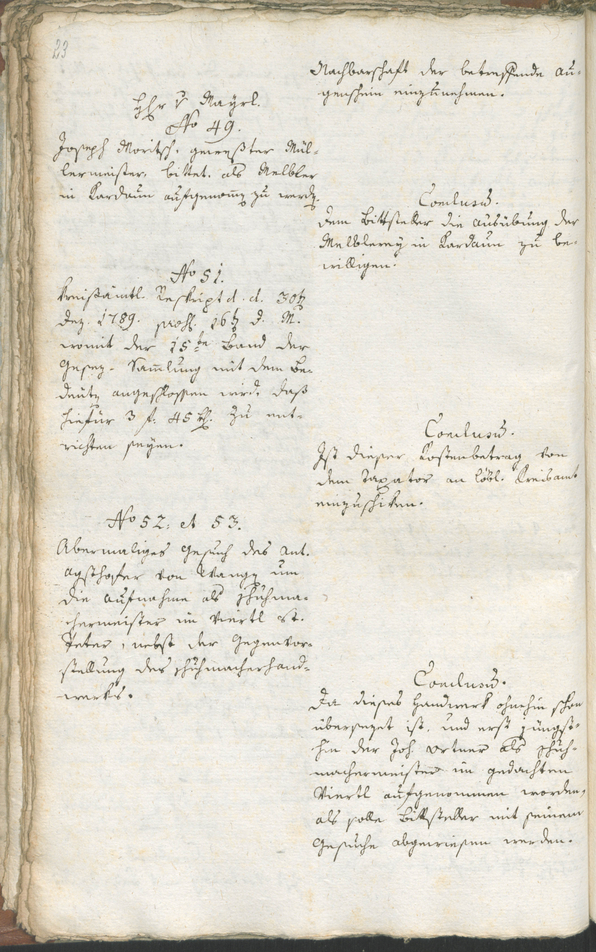 23
Nachbarschaft der betreffende Au-
genschein einzunehmen.
Hr. v. Mayrl.
No 49.
Joseph Moritsch, gewester Mül-
lermeister, bittet, als Melbler
in Kardaun aufgenomen zu werden.
Conclusum.
Dem Bittsteller die Ausübung der
Melblerey in Kardaun zu be-
willigen.
No 51.
Kreisämtl. Reskript d. d. 30ten
Dez. 1789. praes. 16ten d. M.
womit der 15te Band der
Gesez-Sammlung mit dem Be-
deuten angeschlossen wird, daß
hiefür 3 f. 45 kr. zu ent-
richten seyen.
Conclusum.
Ist dieser Kostenbetrag von
dem Taxator an löbl. Kreisamt
einzuschiken.
No 52. et 53.
Abermaliges Gesuch des Ant.
Agsthofer von Wangen um
die Aufnahme als Schuhma-
chermeister im Viertl St.
Peter, nebst der Gegenvor-
stellung des Schuhmacherhand-
werks.
Conclusum.
Da dieses Handwerk ohnehin schon
übersezet ist, und erst jüngst-
hin der Joh. Ortner als Schuh-
machermeister im gedachten
Viertl aufgenommen worden,
als solle Bittsteller mit seinem
Gesuche abgewiesen werden.